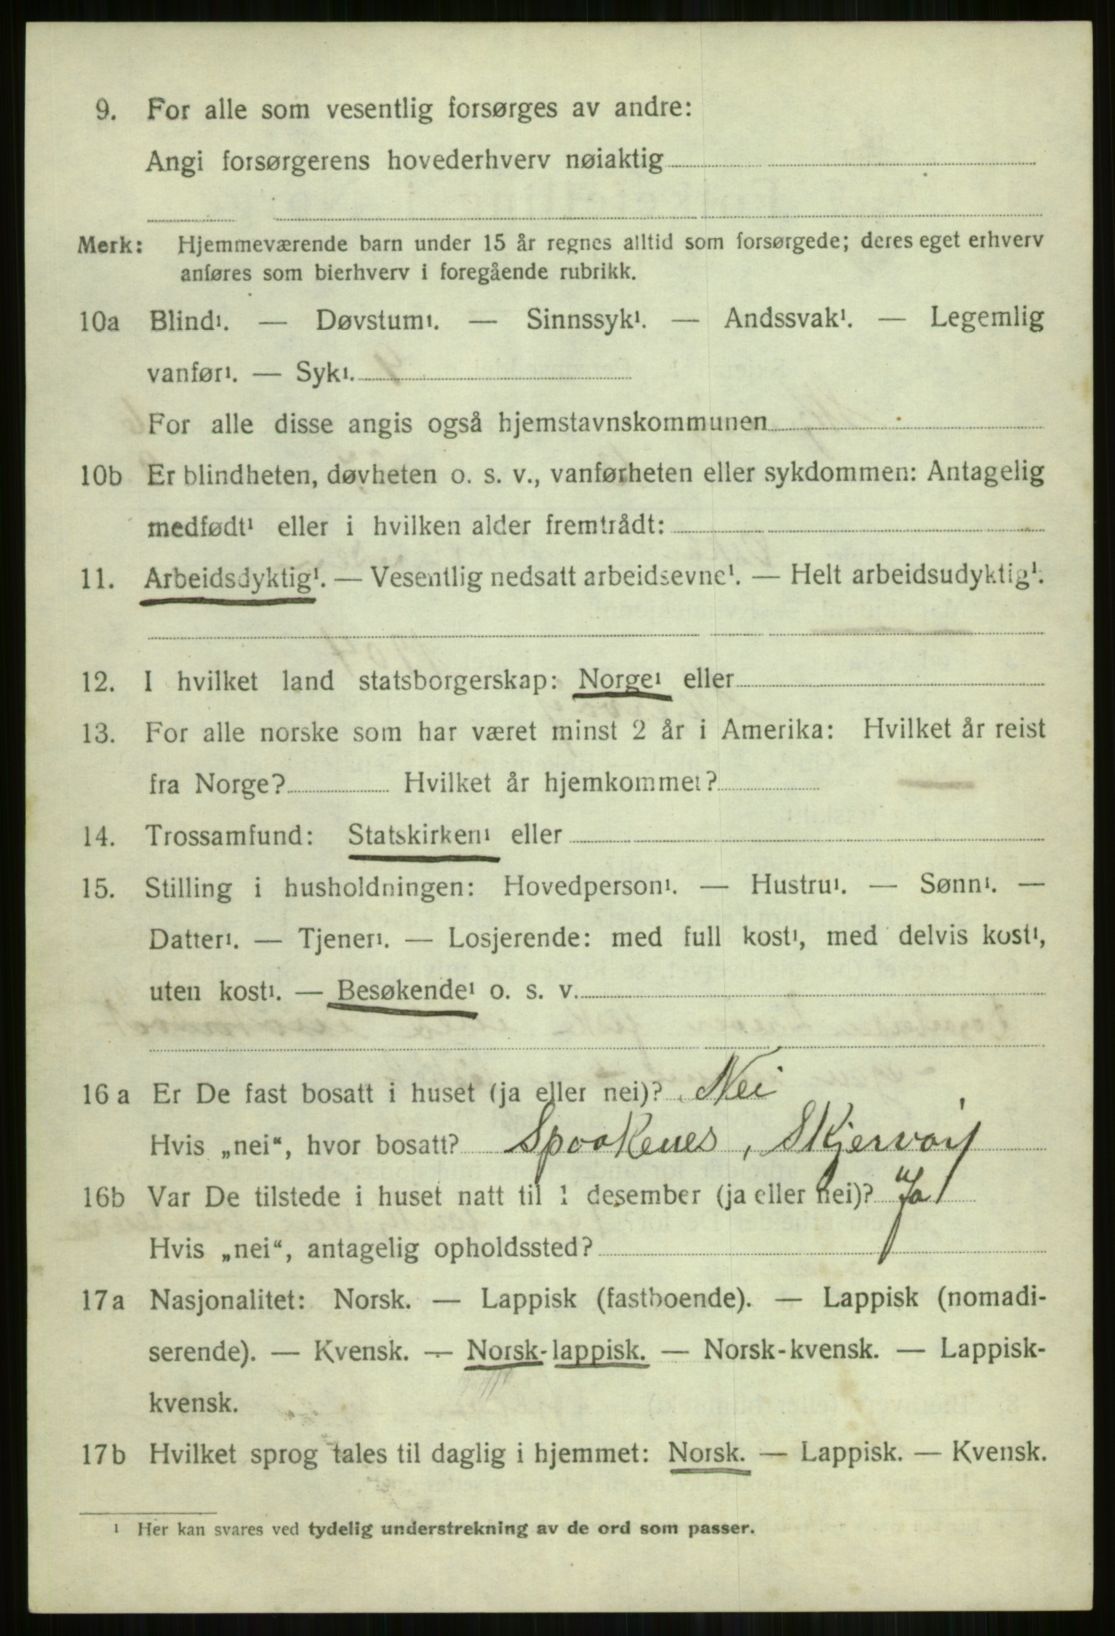 9. For alle som vesentlig forsørges av andre:
Angi forsørgerens hovederhverv nøiaktig
Merk: Hjemmeværende barn under 15 år regnes alltid som forsørgede; deres eget erhverv
anføres som bierhverv i foregående rubrikk.
10a Blind¹. — Døvstum¹. — Sinnssyk¹. — Andssvak¹. — Legemlig
vanfør¹. — Syk¹.
For alle disse angis også hjemstavnskommunen
10b Er blindheten, døvheten o. s. v., vanførheten eller sykdommen: Antagelig
medfødt¹ eller i hvilken alder fremtrådt:
11. Arbeidsdyktig¹. — Vesentlig nedsatt arbeidsevne¹. — Helt arbeidsudyktig¹.
12. I hvilket land statsborgerskap: Norge¹ eller
13. For alle norske som har været minst 2 år i Amerika: Hvilket år reist
fra Norge? Hvilket år hjemkommet?
14. Trossamfund: Statskirken¹ eller
15. Stilling i husholdningen: Hovedperson¹. — Hustru¹. — Sønn¹. —
Datter¹. — Tjener¹. — Losjerende: med full kost¹, med delvis kost¹,
uten kost¹. — Besøkende¹ o. s. v.
16 a Er De fast bosatt i huset (ja eller nei)? Nei
Hvis „nei“, hvor bosatt? Spaakenes, Skjervöy
16b Var De tilstede i huset natt til 1 desember (ja eller nei)? Ja
Hvis „nei“, antagelig opholdssted?
17a Nasjonalitet: Norsk. — Lappisk (fastboende). — Lappisk (nomadi-
serende). — Kvensk. — Norsk-lappisk. — Norsk-kvensk. — Lappisk-
kvensk.
17b Hvilket sprog tales til daglig i hjemmet: Norsk. — Lappisk. — Kvensk.
¹ Her kan svares ved tydelig understrekning av de ord som passer.